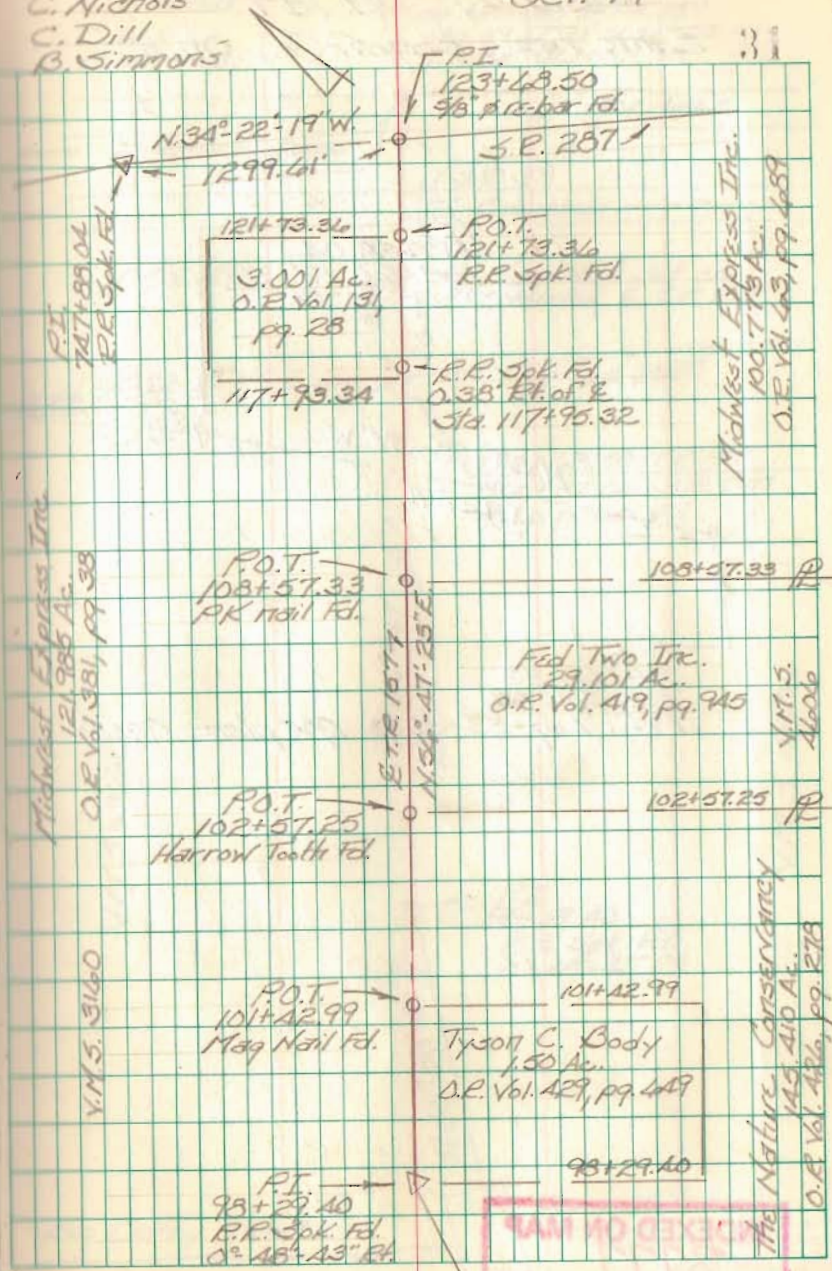 C. Nichols
C. Dill
B. Simmons
31
P.I.
123+68.50
5/8" ø re-bar Fd.
N.34°-22'-19"W.
1299.61'
S.R. 287
P.I.
747+88.02
R.R. Spk. Fd.
121+73.36
P.O.T.
121+73.36
R.R. Spk. Fd.
3.001 Ac.
O.R. Vol. 131,
pg. 28
117+93.34
R.R. Spk. Fd.
0.38' Rt. of ℄
Sta. 117+95.32
Midwest Express Inc.
100.773 Ac.
O.R. Vol. 63, pg. 689
Midwest Express Inc.
121.985 Ac.
O.R. Vol 381, pg. 38
P.O.T.
108+57.33
PK nail Fd.
108+57.33 ⅊
℄ T.R. 157
N.56°-47'-25"E.
Fed Two Inc.
29.101 Ac.
O.R. Vol. 419, pg. 945
V.M.S.
4606
P.O.T.
102+57.25
Harrow Tooth Fd.
102+57.25 ⅊
V.M.S. 3160
P.O.T.
101+42.99
Mag Nail Fd.
101+42.99
Tyson C. Body
1.50 Ac.
O.R. Vol. 429, pg. 649
The Nature Conservancy
145.410 Ac.
O.R. Vol. 426, pg. 278
P.I.
98+29.40
R.R. Spk. Fd.
0°-48'-43" Rt.
98+29.40
INDEXED ON MAP